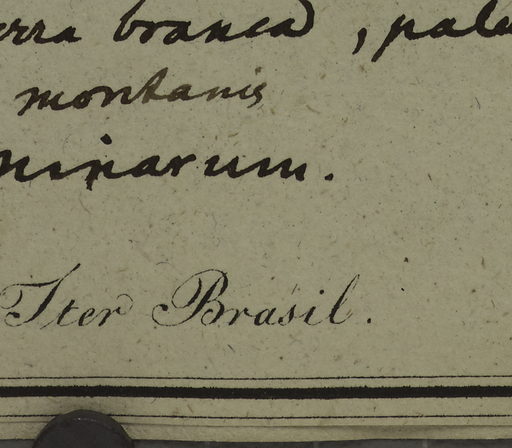 erra branca, palu
montanis
minarum.
Iter Brasil.